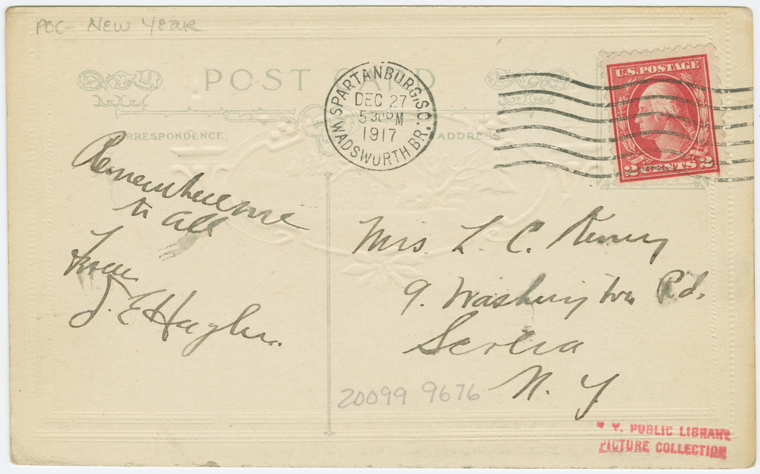 POC - NEW YEAR
POST CARD
CORRESPONDENCE.
ADDRESS.
SPARTANBURG, S.C.
DEC 27
5 30 PM
1917
WADSWORTH BR.
U.S. POSTAGE
2 CENTS 2
Remember me
to all
from
J. E.
Mrs. L. C.
9. Washington Rd.
Scotia
N. Y.
20099 9676
N. Y. PUBLIC LIBRARY
PICTURE COLLECTION